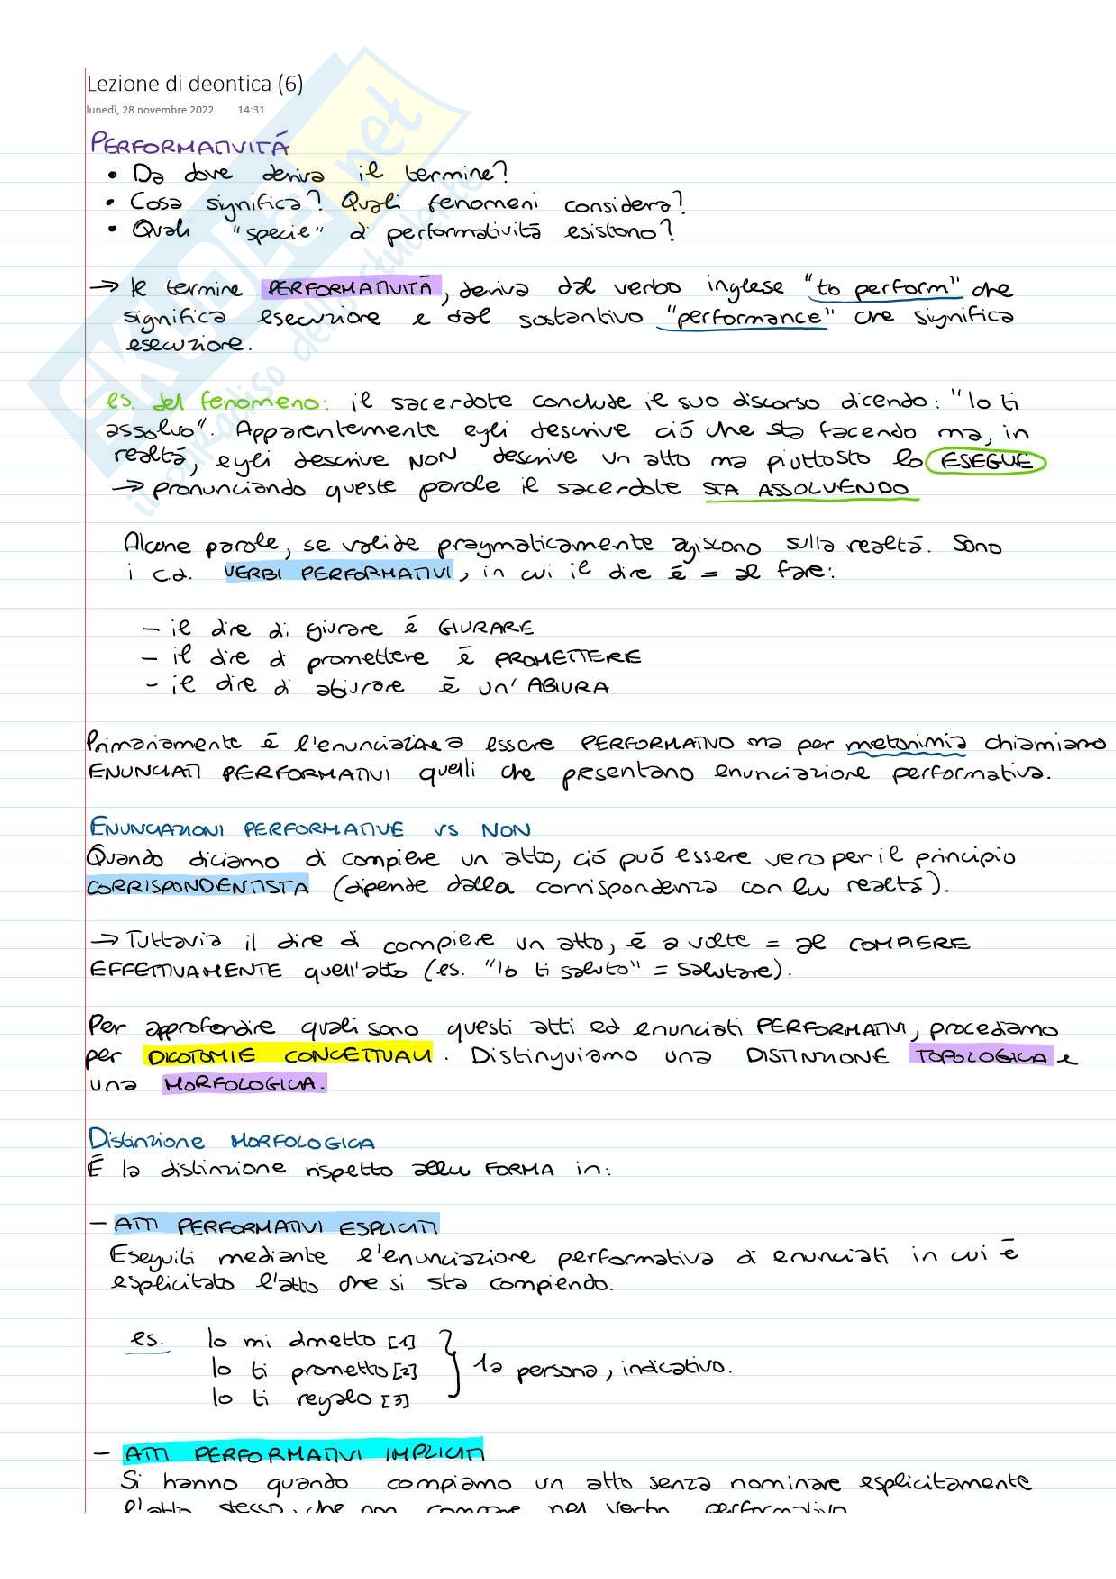 Lezione di deontica (6)
lunedì, 28 novembre 2022 14:31
PERFORMATIVITÁ
• Da dove deriva il termine?
• Cosa significa? Quali fenomeni considera?
• Quali "specie" di performatività esistono?
→ Il termine PERFORMATIVITÁ, deriva dal verbo inglese "to perform" che
significa esecuzione e dal sostantivo "performance" che significa
esecuzione.
es. del fenomeno: il sacerdote conclude il suo discorso dicendo: "Io ti
assolvo". Apparentemente egli descrive ció che sta facendo ma, in
realtá, egli descrive NON descrive un atto ma piuttosto lo ESEGUE
→ pronunciando queste parole il sacerdote STA ASSOLVENDO
Alcune parole, se valide pragmaticamente agiscono sulla realtá. Sono
i c.d. VERBI PERFORMATIVI, in cui il dire é = al fare:
- il dire di giurare é GIURARE
- il dire di promettere é PROMETTERE
- il dire di abiurare é un' ABIURA
Primariamente é l'enunciazione a essere PERFORMATIVO ma per metonimia chiamiamo
ENUNCIATI PERFORMATIVI quelli che presentano enunciazione performativa.
ENUNCIAZIONI PERFORMATIVE vs NON
Quando diciamo di compiere un atto, ció puó essere vero per il principio
CORRISPONDENTISTA (dipende dalla corrispondenza con la realtá).
→ Tuttavia il dire di compiere un atto, é a volte = al COMPIERE
EFFETTIVAMENTE quell'atto (es. "Io ti saluto" = salutare).
Per approfondire quali sono questi atti ed enunciati PERFORMATIVI, procediamo
per DICOTOMIE CONCETTUALI. Distinguiamo una DISTINZIONE TOPOLOGICA e
una MORFOLOGICA.
Distinzione MORFOLOGICA
É la distinzione rispetto alla FORMA in:
- ATTI PERFORMATIVI ESPLICITI
Eseguiti mediante l'enunciazione performativa di enunciati in cui é
esplicitato l'atto che si sta compiendo.
es. Io mi dimetto [1]
Io ti prometto [2] } 1a persona, indicativo.
Io ti regalo [3]
- ATTI PERFORMATIVI IMPLICITI
Si hanno quando compiamo un atto senza nominare esplicitamente
l'atto stesso, che non compare nel verbo performativo